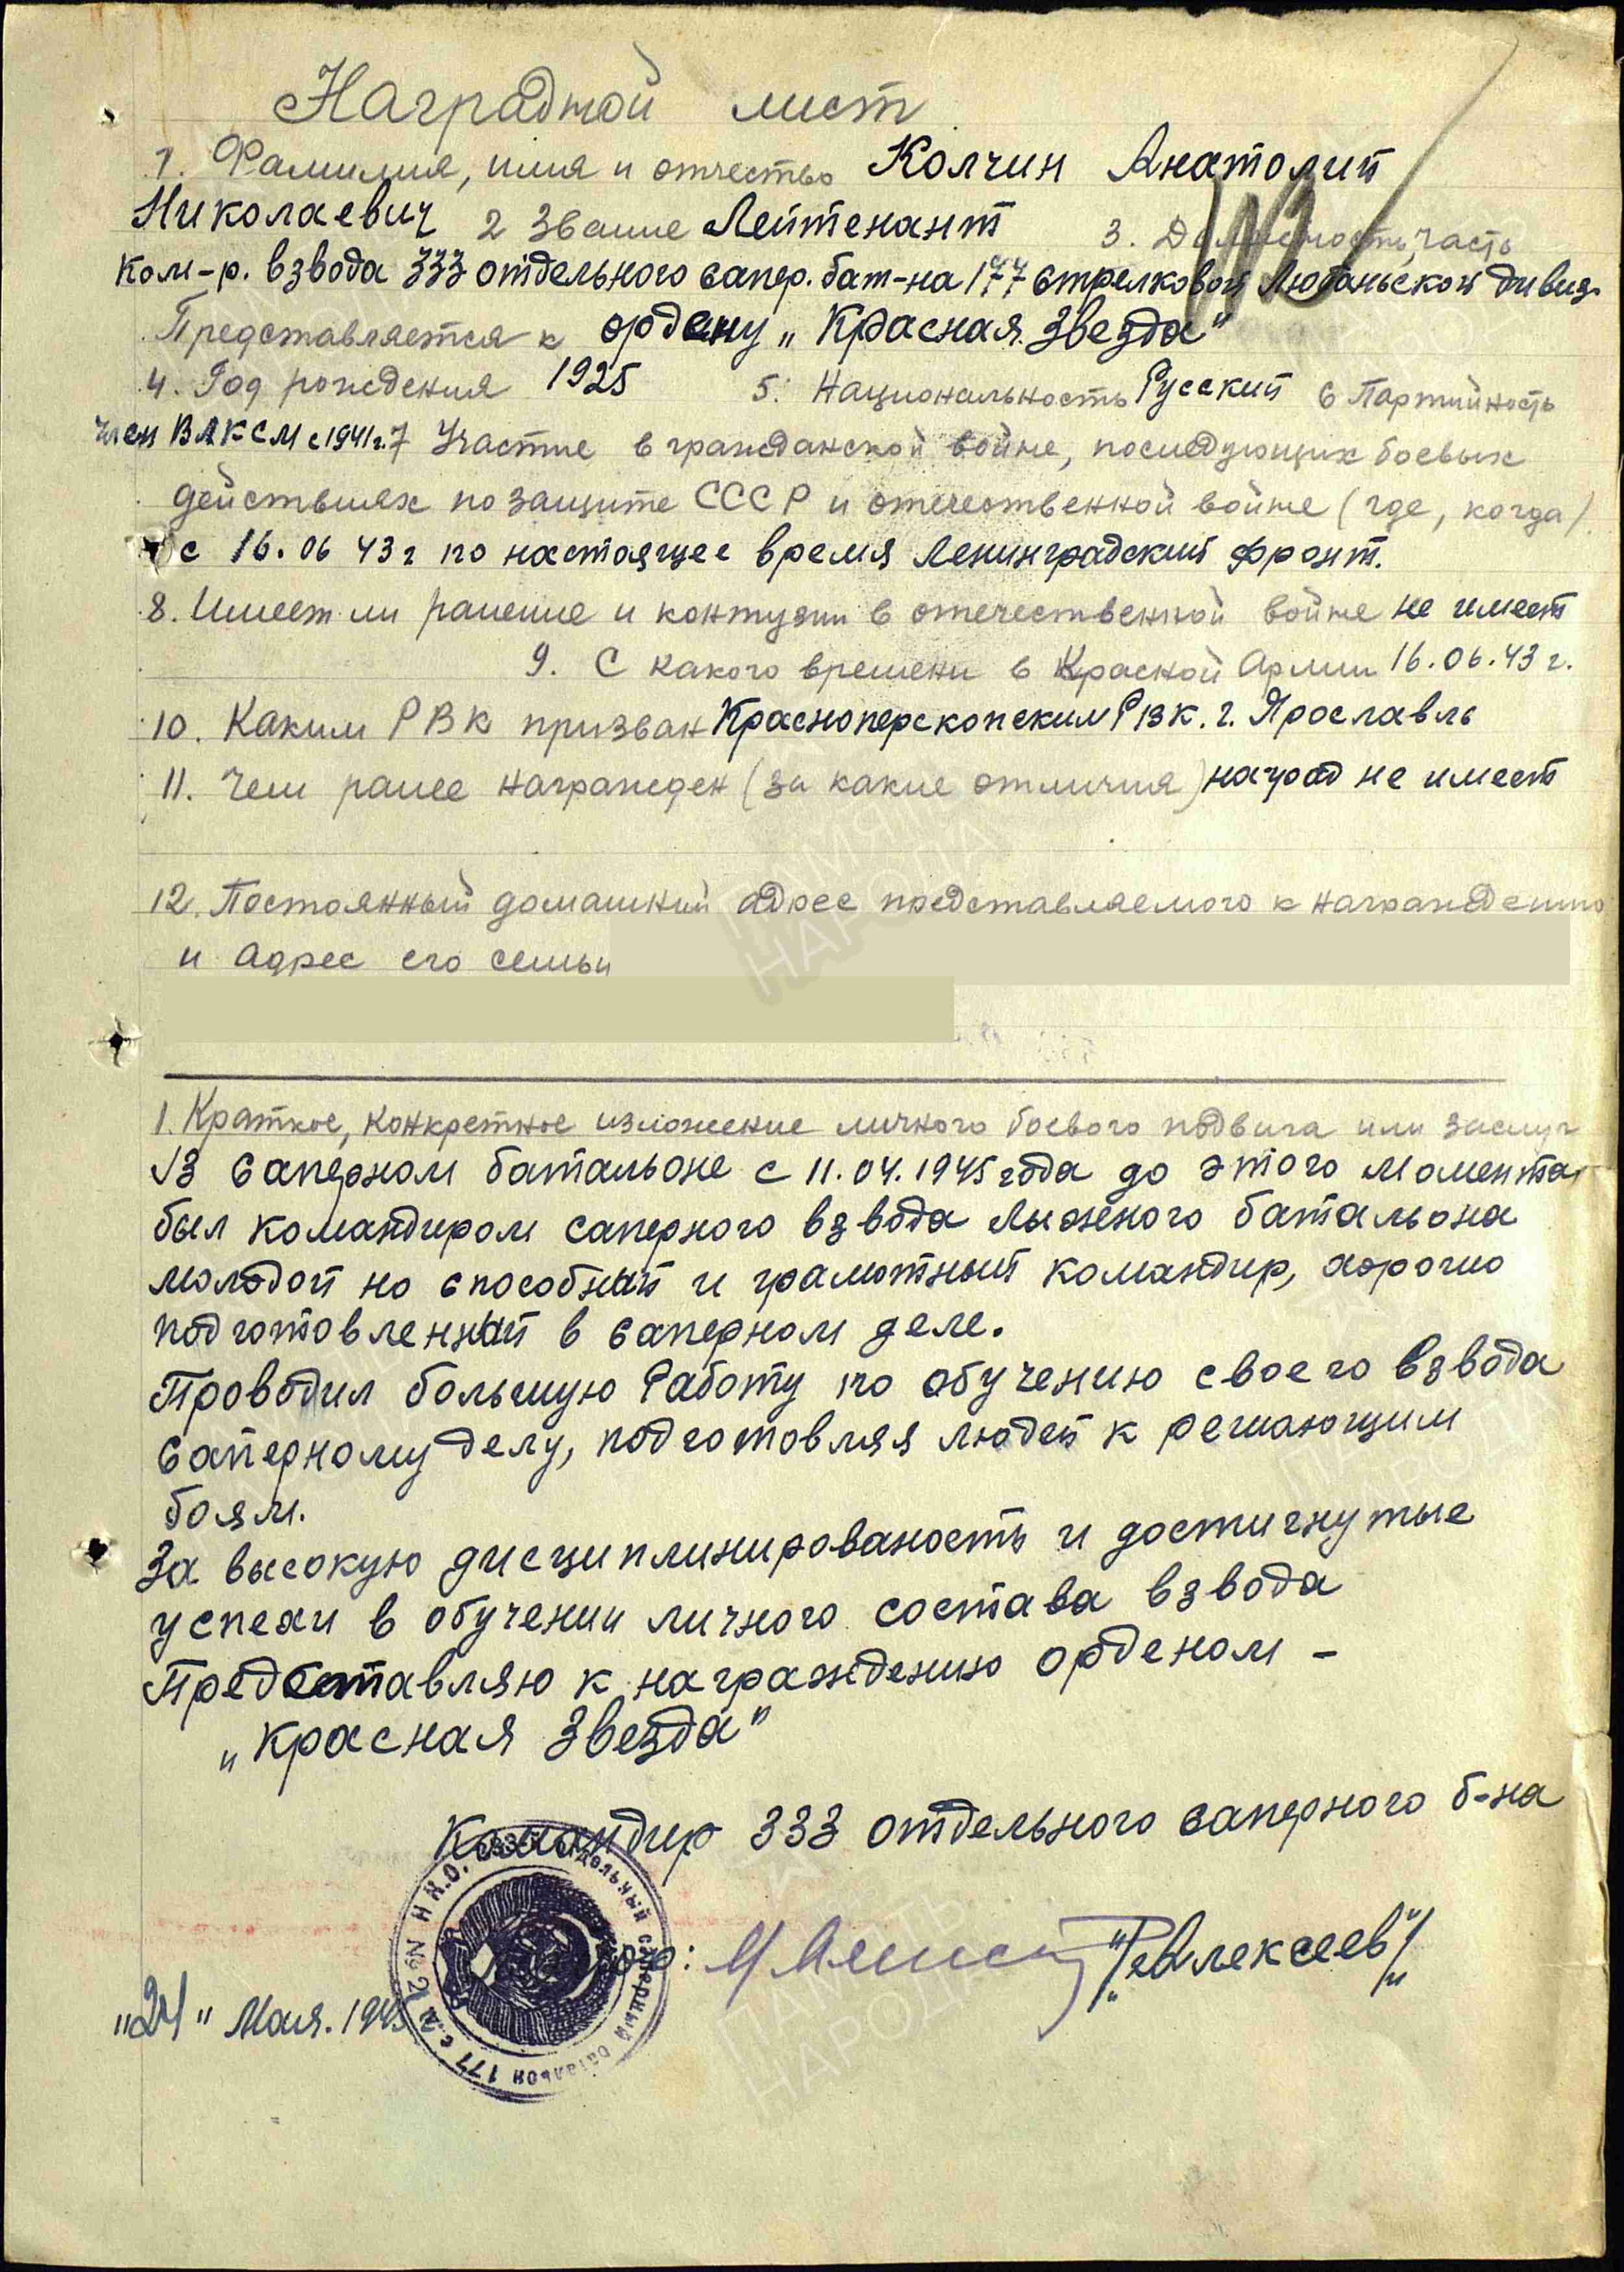 Наградной лист
1. Фамилия, имя и отчество Колчин Анатолий
Николаевич 2 Звание Лейтенант 3. Должность, часть
Ком-р. взвода 333 отдельного сапер. бат-на 177 стрелковой Любаньской дивиз.
Представляется к ордену „Красная Звезда"
4. Год рождения 1925 5. Национальность Русский 6 Партийность
член ВЛКСМ с 1941г. 7 Участие в гражданской войне, последующих боевых
действиях по защите СССР и отечественной войне (где, когда)
с 16.06 43г по настоящее время Ленинградский фронт.
8. Имеет ли ранение и контузии в отечественной войне не имеет
9. С какого времени в Красной Армии 16.06.43 г.
10. Каким РВК призван Красноперекопским РВК. г. Ярославль
11. Чем ранее награжден (за какие отличия) наград не имеет
12. Постоянный домашний адрес представляемого к награждению
и адрес его семьи
1. Краткое, конкретное изложение личного боевого подвига или заслуг
В саперном батальоне с 11.04.1945 года до этого момента
был командиром саперного взвода лыжного батальона
молодой но способный и грамотный командир, хорошо
подготовленный в саперном деле.
Проводил большую работу по обучению своего взвода
саперному делу, подготовляя людей к решающим
боям.
За высокую дисциплинированость и достигнутые
успехи в обучении личного состава взвода
Представляю к награждению орденом -
„Красная Звезда"
Командир 333 отдельного саперного б-на
"/Алексеев"/
"24" Мая. 1945
Н.К.О. 333 отдельный саперный батальон 177 с.д.
ПАМЯТЬ НАРОДА